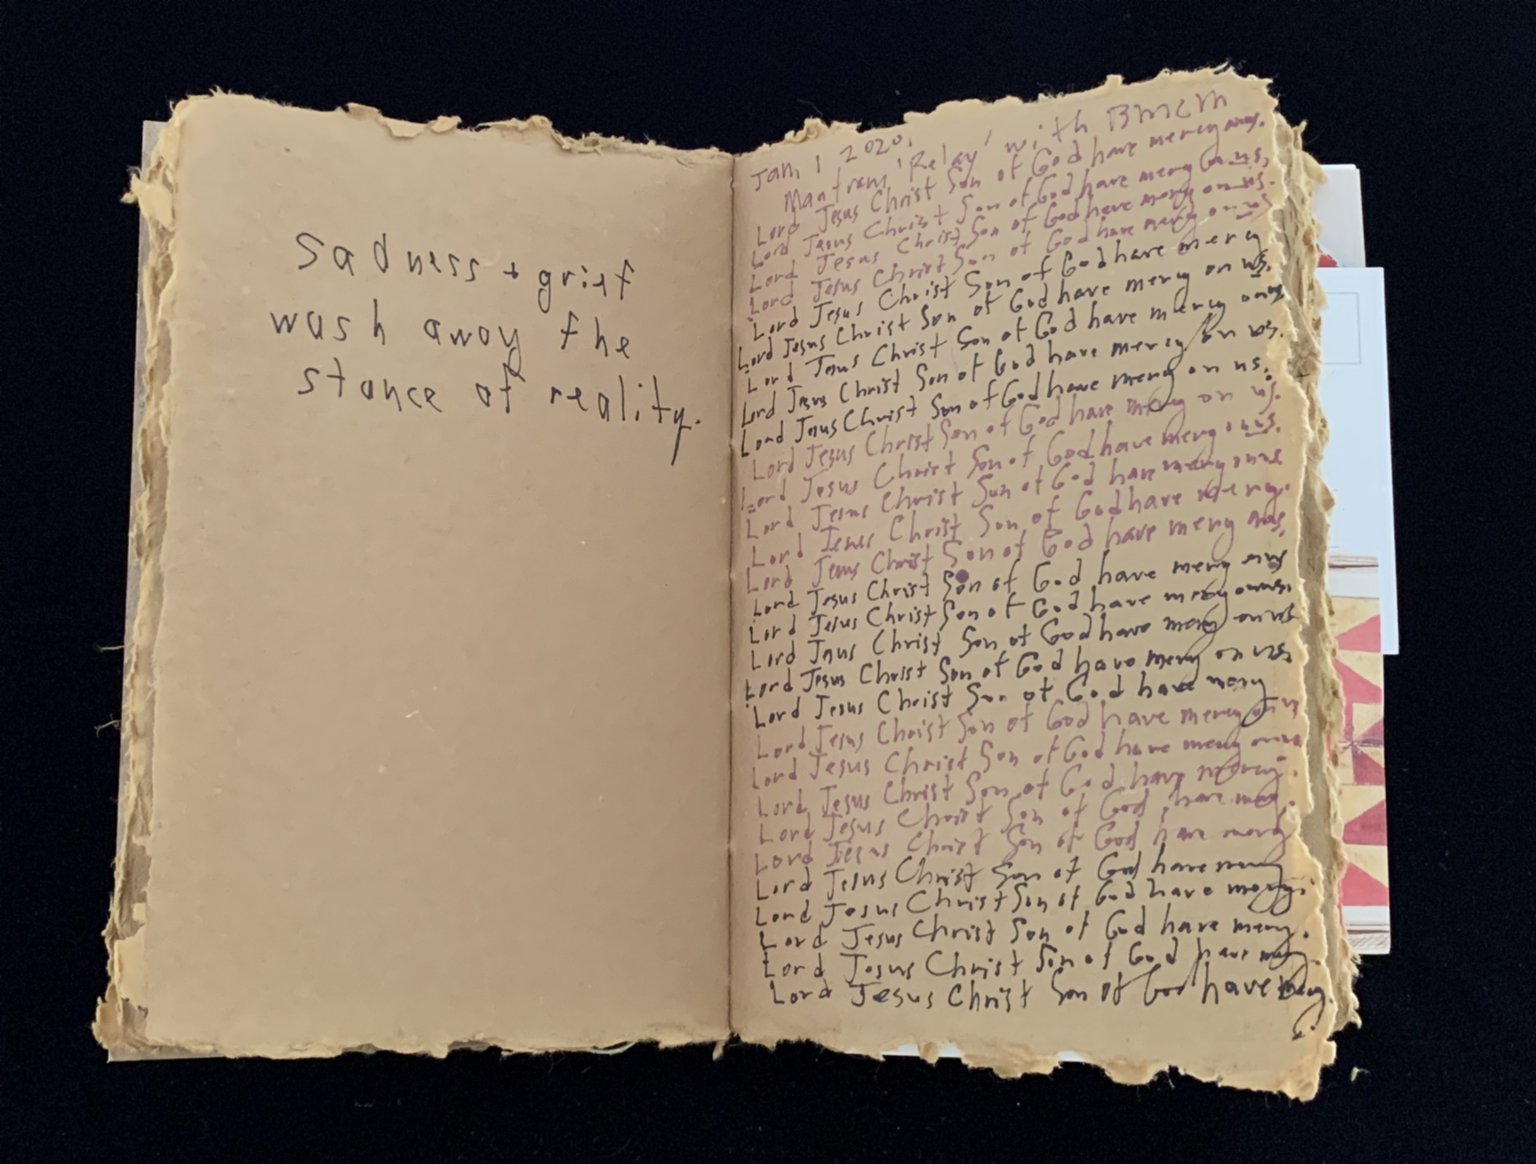 Sadness + grief
wash away the
stance of reality.
Jan, 1 2020,
Mantram 'Relay' with BMCM
Lord Jesus Christ Son of God have mercy on us.
Lord Jesus Christ Son of God have mercy on us,
Lord Jesus Christ Son of God have mercy on us.
Lord Jesus Christ Son of God have mercy on us
Lord Jesus Christ Son of God have mercy
Lord Jesus Christ Son of God have mercy on us.
Lord Jesus Christ Son of God have mercy on us
Lord Jesus Christ Son of God have mercy on us.
Lord Jesus Christ Son of God have mercy on us.
Lord Jesus Christ Son of God have mercy on us.
Lord Jesus Christ Son of God have mercy on us.
Lord Jesus Christ Son of God have mercy on us
Lord Jesus Christ Son of God have mercy.
Lord Jesus Christ Son of God have mercy on us.
Lord Jesus Christ Son of God have mercy on us
Lord Jesus Christ Son of God have mercy on us
Lord Jesus Christ Son of God have mercy on us
Lord Jesus Christ Son of God have mercy on us.
Lord Jesus Christ Son of God have mercy
Lord Jesus Christ Son of God have mercy on us
Lord Jesus Christ Son of God have mercy on us
Lord Jesus Christ Son of God have mercy.
Lord Jesus Christ Son of God have mercy.
Lord Jesus Christ Son of God have mercy
Lord Jesus Christ Son of God have mercy
Lord Jesus Christ Son of God have mercy.
Lord Jesus Christ Son of God have mercy.
Lord Jesus Christ Son of God have mercy.
Lord Jesus Christ Son of God have mercy.